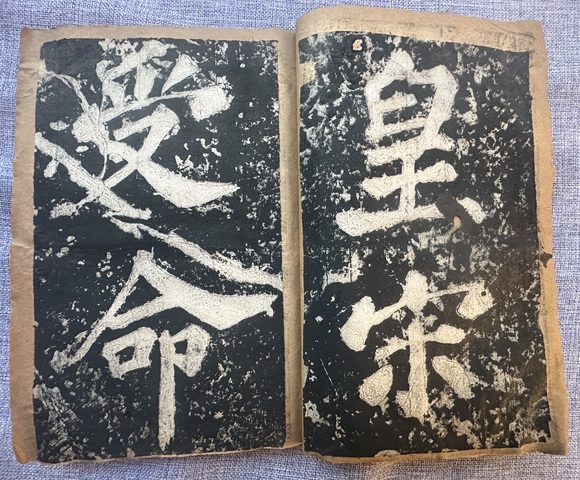 皇宋
受命